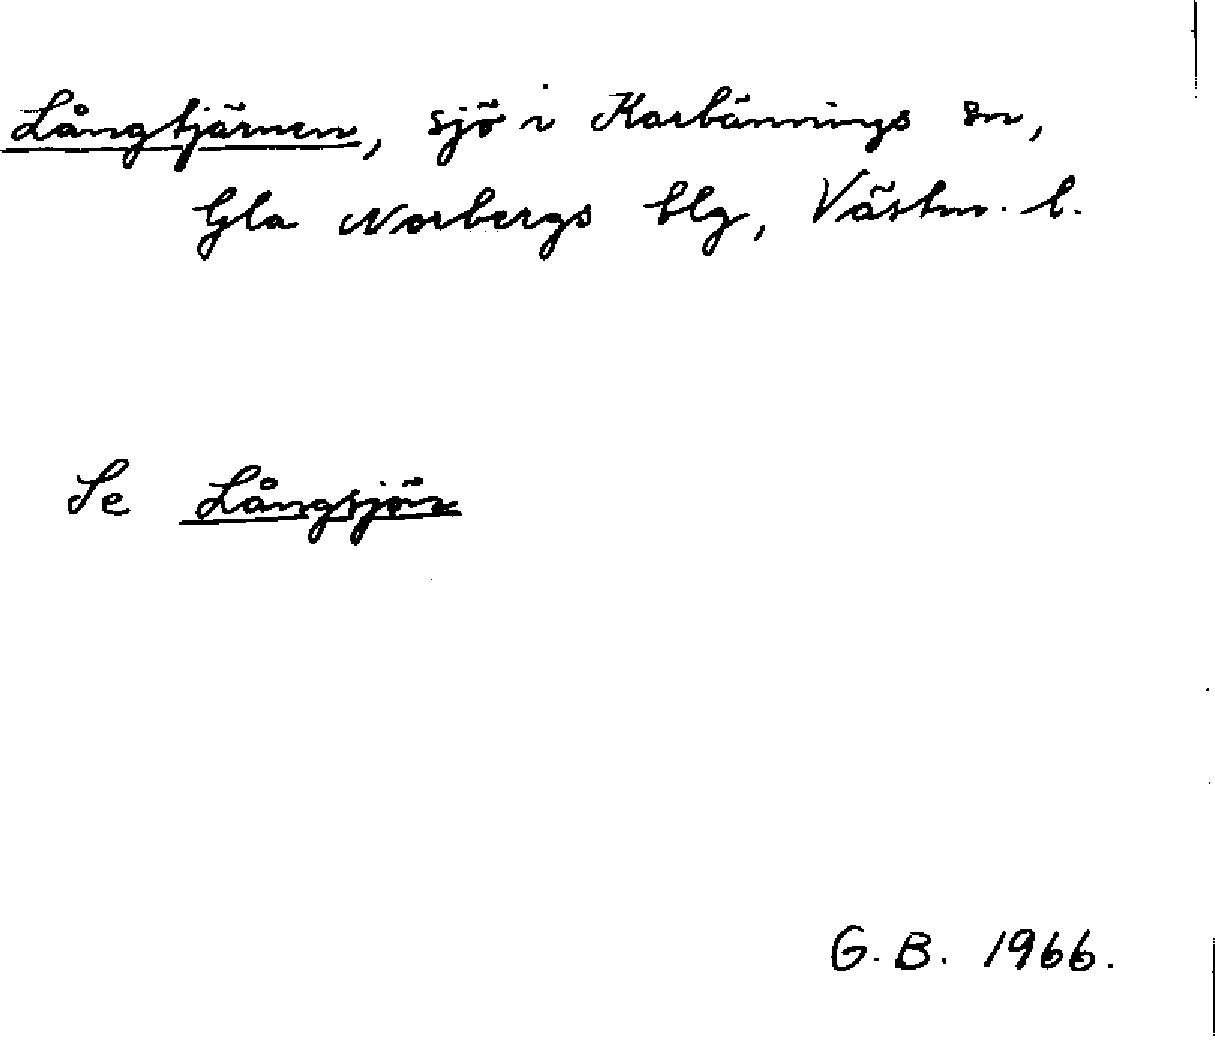 Långtjärnen, sjö i Karbännings sn,
Gla Norbergs blg, Västm. l.
Se Långsjön
G.B. 1966.